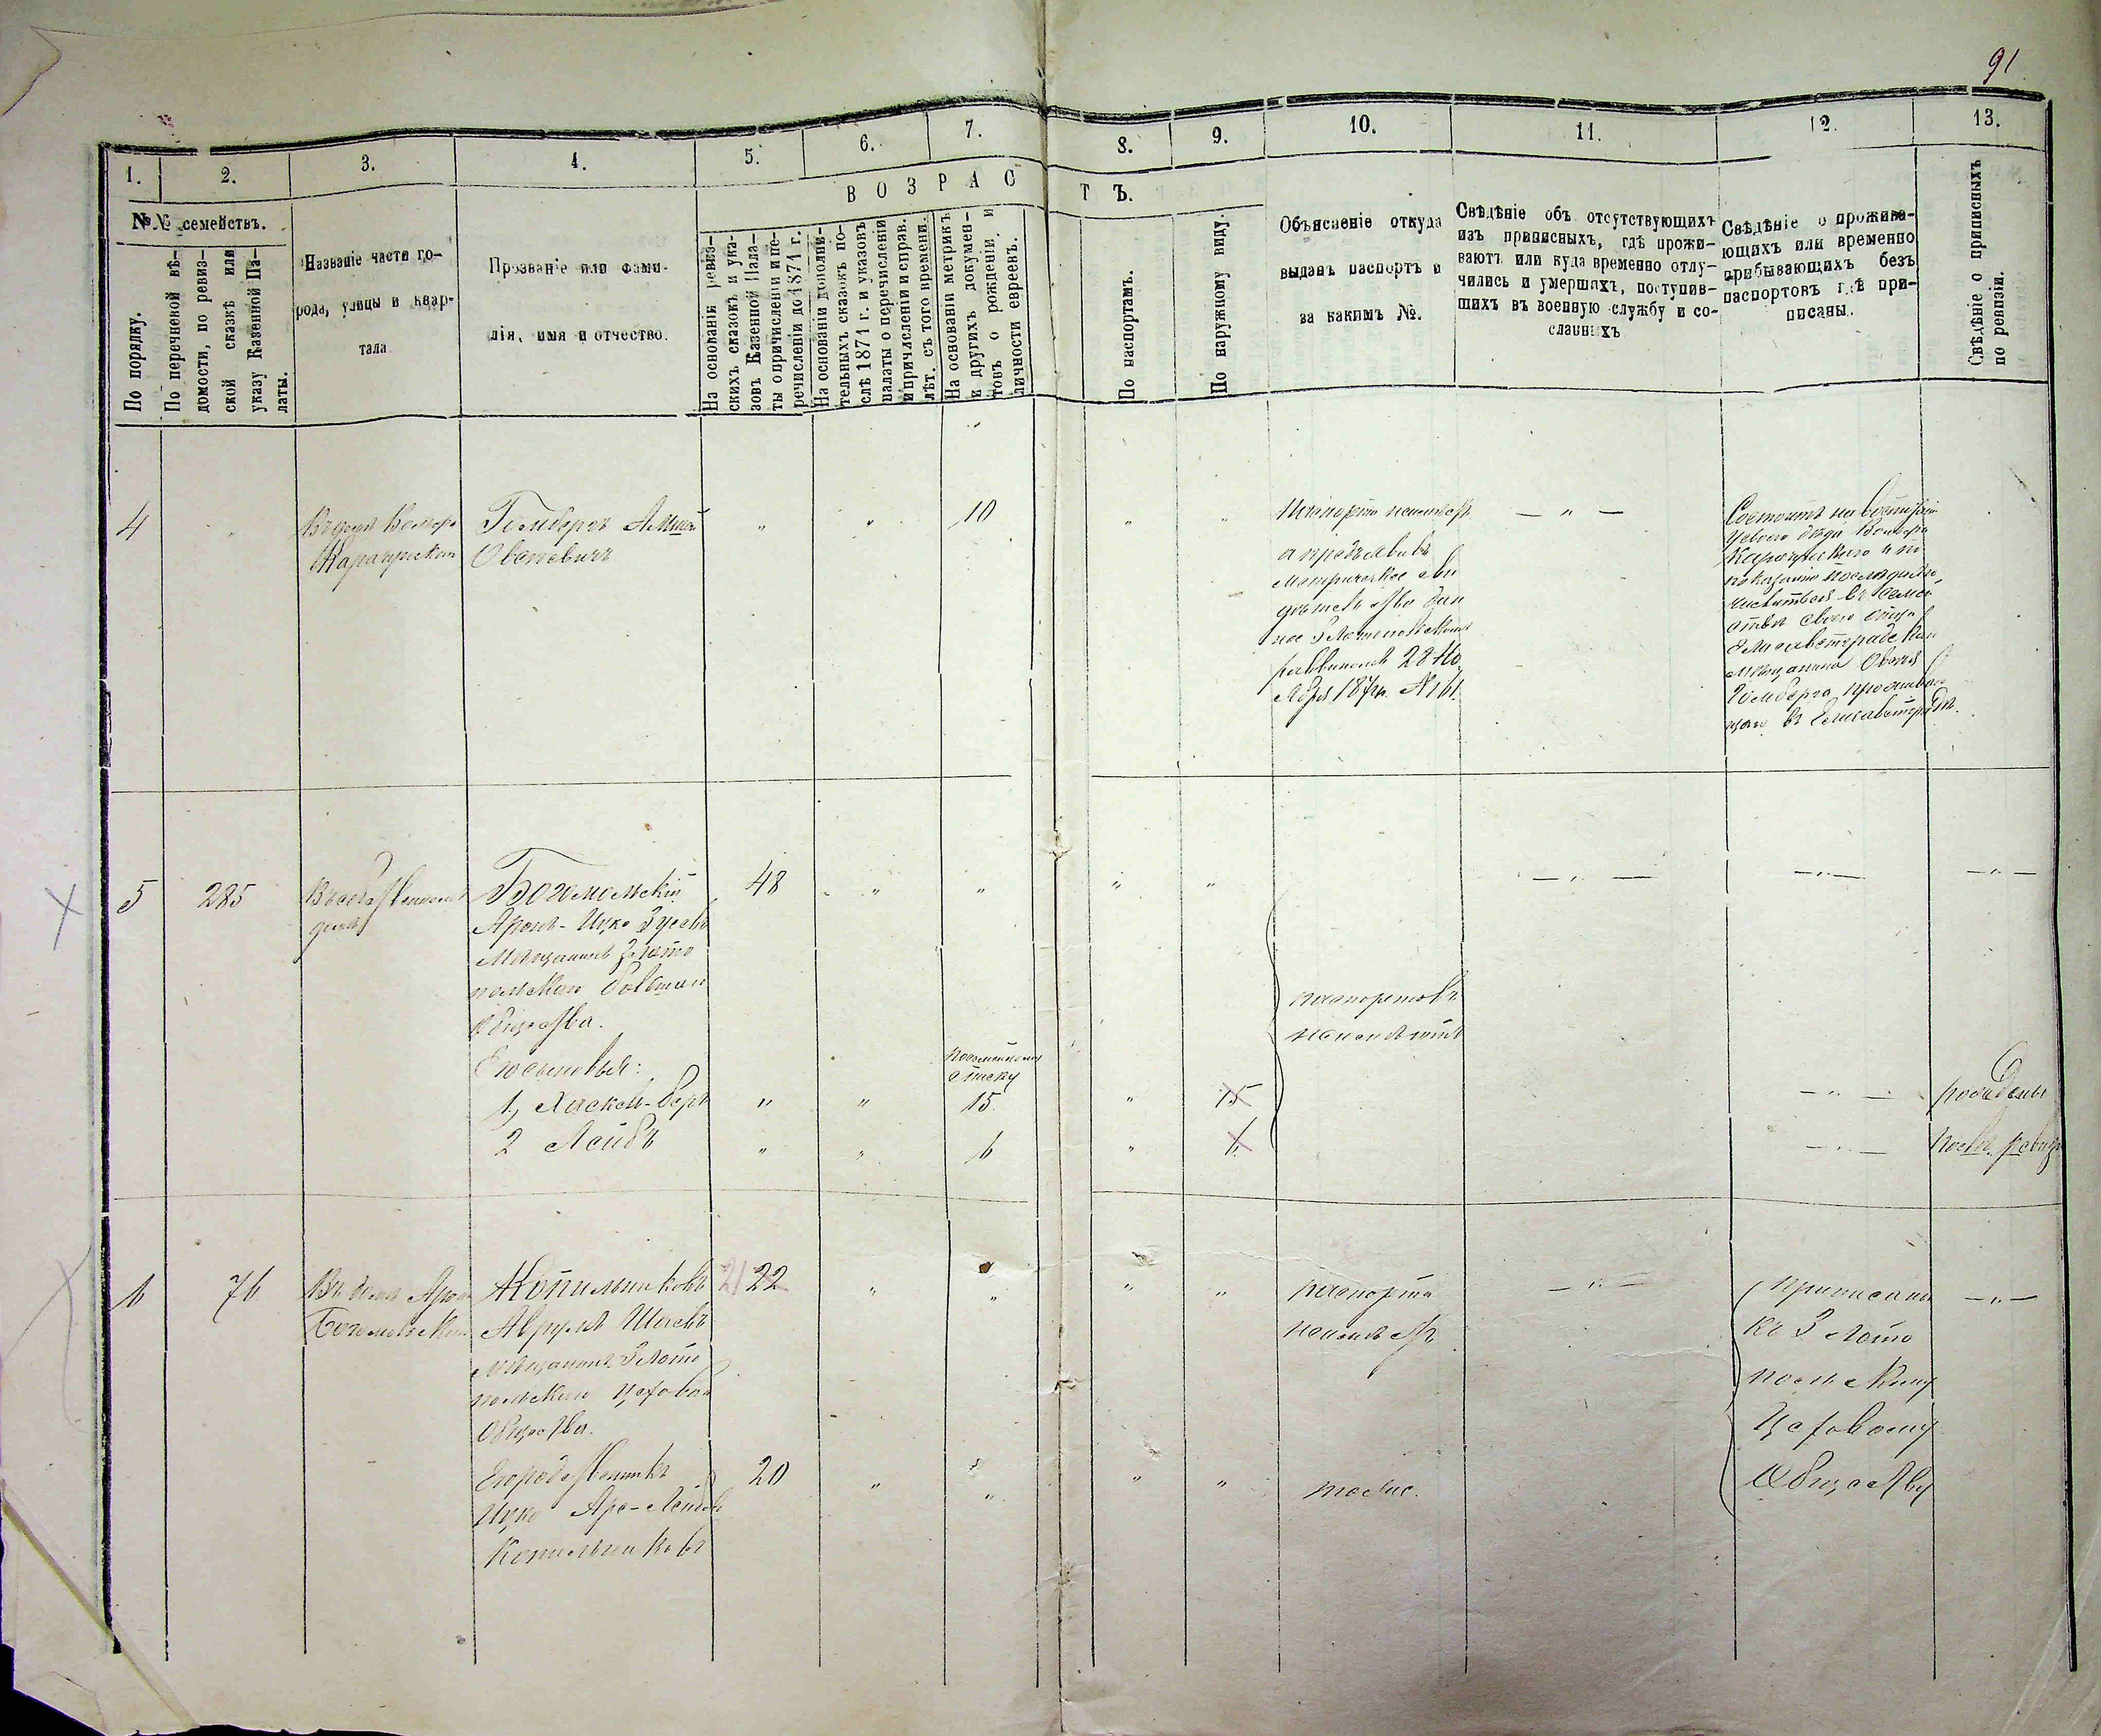 91
1.
2.
3.
4.
5.
6.
7.
8.
9.
10.
11.
12.
13.
ВОЗРАСТЪ.
№№ семействъ.
По порядку.
По перечневой вѣ-
домости, по ревиз-
ской сказкѣ или
указу Казенной Па-
латы.
Названіе части го-
рода, улицы и квар-
тала
Прозваніе или фами-
лія, имя и отчество.
На основаніи ревиз-
скихъ сказокъ и ука-
зовъ Казенной Пала-
ты о причисленіи и пе-
речисленіи до 1871 г.
На основаніи дополни-
тельныхъ сказокъ по-
слѣ 1871 г. и указовъ
палаты о перечисленіи
и причисленіи и справ.
лѣт. съ того времени.
На основаніи метрикъ
и другихъ докумен-
товъ о рожденіи и
личности евреевъ.
По паспортамъ.
По наружному виду.
Объясненіе откуда
выданъ паспортъ и
за какимъ №.
Свѣдѣніе объ отсутствующихъ
изъ приписныхъ, гдѣ прожи-
ваютъ или куда временно отлу-
чились и умершихъ, поступив-
шихъ въ военную службу и со-
сланныхъ
Свѣдѣніе о прожива-
ющихъ или временно
прибывающихъ безъ
паспортовъ гдѣ при-
писаны.
Свѣдѣніе о приписныхъ
по ревизіи.
4
Въ домѣ
Гомбергъ
Овсеевичъ
" " 10 " "
а предъявилъ
метрическое сви
дѣтельство дан
ное Златопольскимъ
раввиномъ 28 Но
ября
— " —
Состоитъ на воспитаніи
у своего дѣда
показанію послѣдняго
числится въ семей
ствѣ своего отца
Елисаветградскаго
мѣщанина Овсея
Гомберга проживаю
щаго въ Елисаветградѣ.
5
285
Въ собственномъ
домѣ
Богомольскій
Аронъ-Ицко Зусевъ
Мѣщанинъ Злато
польскаго
Общества.
Его сыновья:
1, Хаскель-Беръ
2 Лейбъ
48 " " " "
посемейному
списку
" " 15 " 15
" " 6 " 6
паспортовъ
неимѣютъ
— " — — " — — " —
— " — рожденъ
— " — послѣ ревиз
6
76
Въ домѣ Арона
Богомольскаго
Копильниковъ
Аврумъ Шаевъ
мѣщанинъ Злато
польскаго цехова
Общества.
Его родственникъ
Ицко Арс-Лейбов
Копильниковъ
21 22 " " " "
20 " " " "
паспорта
неимѣетъ
тоже.
— " —
приписаны
къ Злато
польскому
Цеховому
Обществу
— " —